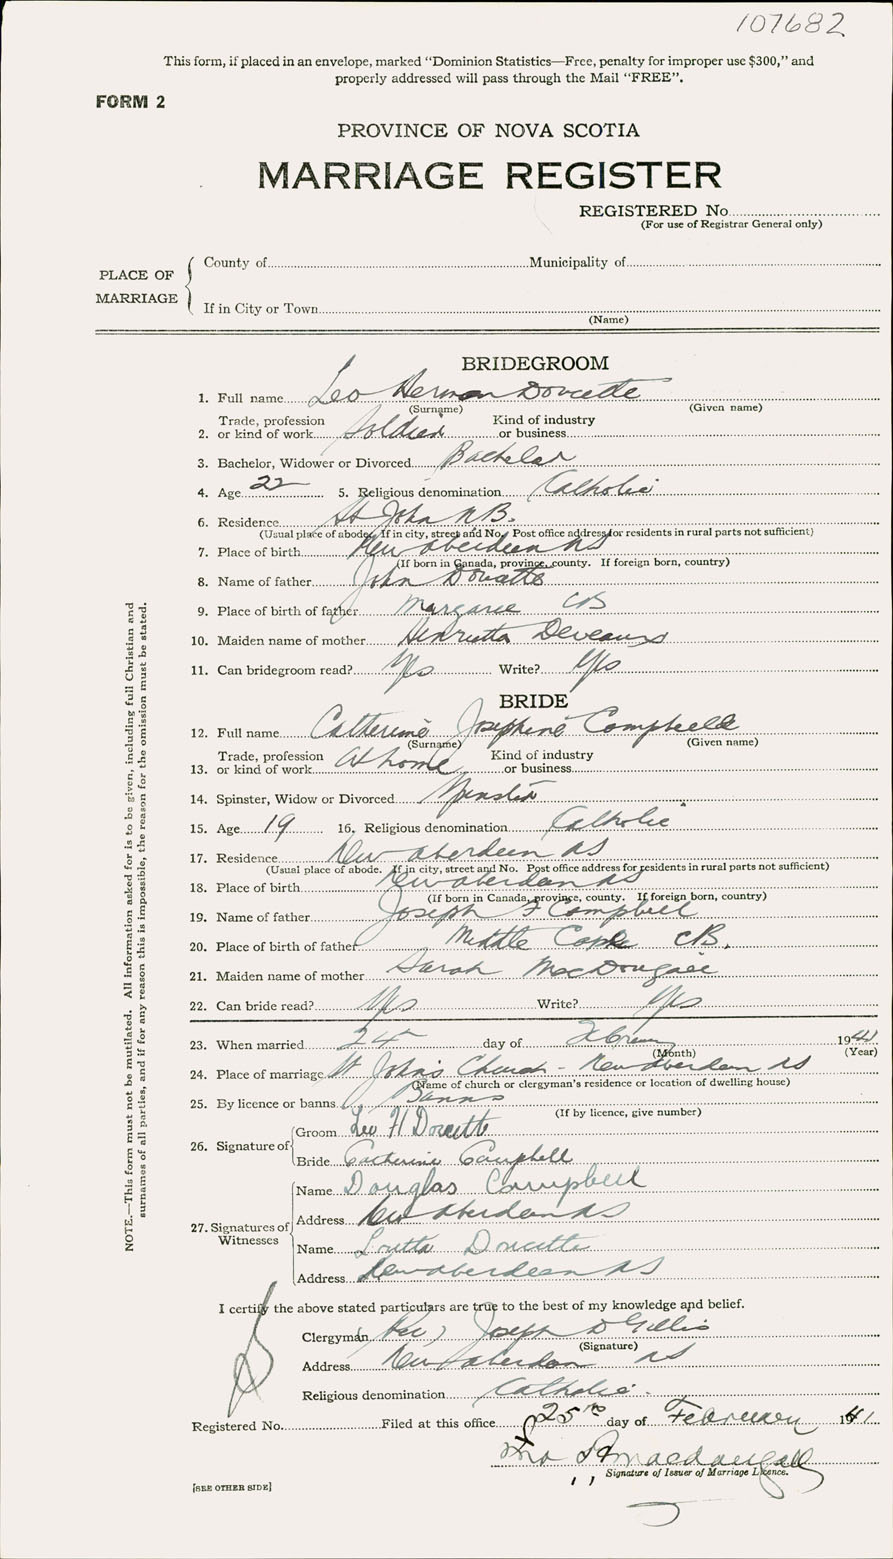 107682
This form, if placed in an envelope, marked "Dominion Statistics—Free, penalty for improper use $300," and
properly addressed will pass through the Mail "FREE".
FORM 2
PROVINCE OF NOVA SCOTIA
MARRIAGE REGISTER
REGISTERED No.
(For use of Registrar General only)
PLACE OF MARRIAGE
County of Municipality of
If in City or Town
(Name)
BRIDEGROOM
1. Full name Leo Herman Doucette
(Surname) (Given name)
2. Trade, profession or kind of work Soldier Kind of industry or business
3. Bachelor, Widower or Divorced Bachelor
4. Age 22 5. Religious denomination Catholic
6. Residence St John N.B.
(Usual place of abode. If in city, street and No. Post office address for residents in rural parts not sufficient)
7. Place of birth New Aberdeen NS
(If born in Canada, province, county. If foreign born, country)
8. Name of father John Doucette
9. Place of birth of father Margaree CB
10. Maiden name of mother Henrietta Deveaux
11. Can bridegroom read? Yes Write? Yes
BRIDE
12. Full name Catherine Josephine Campbell
(Surname) (Given name)
13. Trade, profession or kind of work At home Kind of industry or business
14. Spinster, Widow or Divorced Spinster
15. Age 19 16. Religious denomination Catholic
17. Residence New Aberdeen NS
(Usual place of abode. If in city, street and No. Post office address for residents in rural parts not sufficient)
18. Place of birth New Aberdeen NS
(If born in Canada, province, county. If foreign born, country)
19. Name of father Joseph F Campbell
20. Place of birth of father Middle Cape CB.
21. Maiden name of mother Sarah MacDougall
22. Can bride read? Yes Write? Yes
23. When married 24 day of 1941
(Month) (Year)
24. Place of marriage St John's Church - New Aberdeen NS
(Name of church or clergyman's residence or location of dwelling house)
25. By licence or banns Banns
(If by licence, give number)
26. Signature of
Groom Leo H Doucette
Bride Catherine Campbell
27. Signatures of Witnesses
Name Douglas Campbell
Address New Aberdeen NS
Name Loretta Doucette
Address New Aberdeen NS
I certify the above stated particulars are true to the best of my knowledge and belief.
Clergyman (Rev) Joseph D Gillis
(Signature)
Address New Aberdeen NS
Religious denomination Catholic.
Registered No. Filed at this office 25 day of February 1941
Macdougall
Signature of Issuer of Marriage Licence.
[SEE OTHER SIDE]
NOTE.—This form must not be mutilated. All information asked for is to be given, including full Christian and
surnames of all parties, and if for any reason this is impossible, the reason for the omission must be stated.